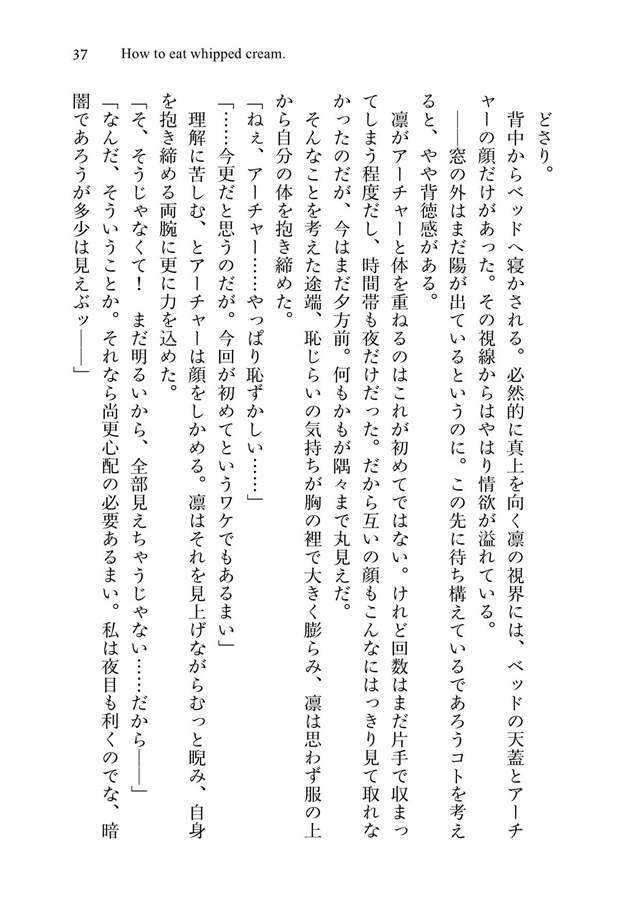 37 How to eat whipped cream.
どさり。
背中からベッドへ寝かされる。必然的に真上を向く凛の視界には、ベッドの天蓋とアーチ
ャーの顔だけがあった。その視線からはやはり情欲が溢れている。
――窓の外はまだ陽が出ているというのに。この先に待ち構えているであろうコトを考え
ると、やや背徳感がある。
凛がアーチャーと体を重ねるのはこれが初めてではない。けれど回数はまだ片手で収まっ
てしまう程度だし、時間帯も夜だけだった。だから互いの顔もこんなにはっきり見て取れな
かったのだが、今はまだ夕方前。何もかもが隅々まで丸見えだ。
そんなことを考えた途端、恥じらいの気持ちが胸の裡で大きく膨らみ、凛は思わず服の上
から自分の体を抱き締めた。
「ねぇ、アーチャー……やっぱり恥ずかしい……」
「……今更だと思うのだが。今回が初めてというワケでもあるまい」
理解に苦しむ、とアーチャーは顔をしかめる。凛はそれを見上げながらむっと睨み、自身
を抱き締める両腕に更に力を込めた。
「そ、そうじゃなくて！　まだ明るいから、全部見えちゃうじゃない……だから――」
「なんだ、そういうことか。それなら尚更心配の必要あるまい。私は夜目も利くのでな、暗
闇であろうが多少は見えぶッ――」